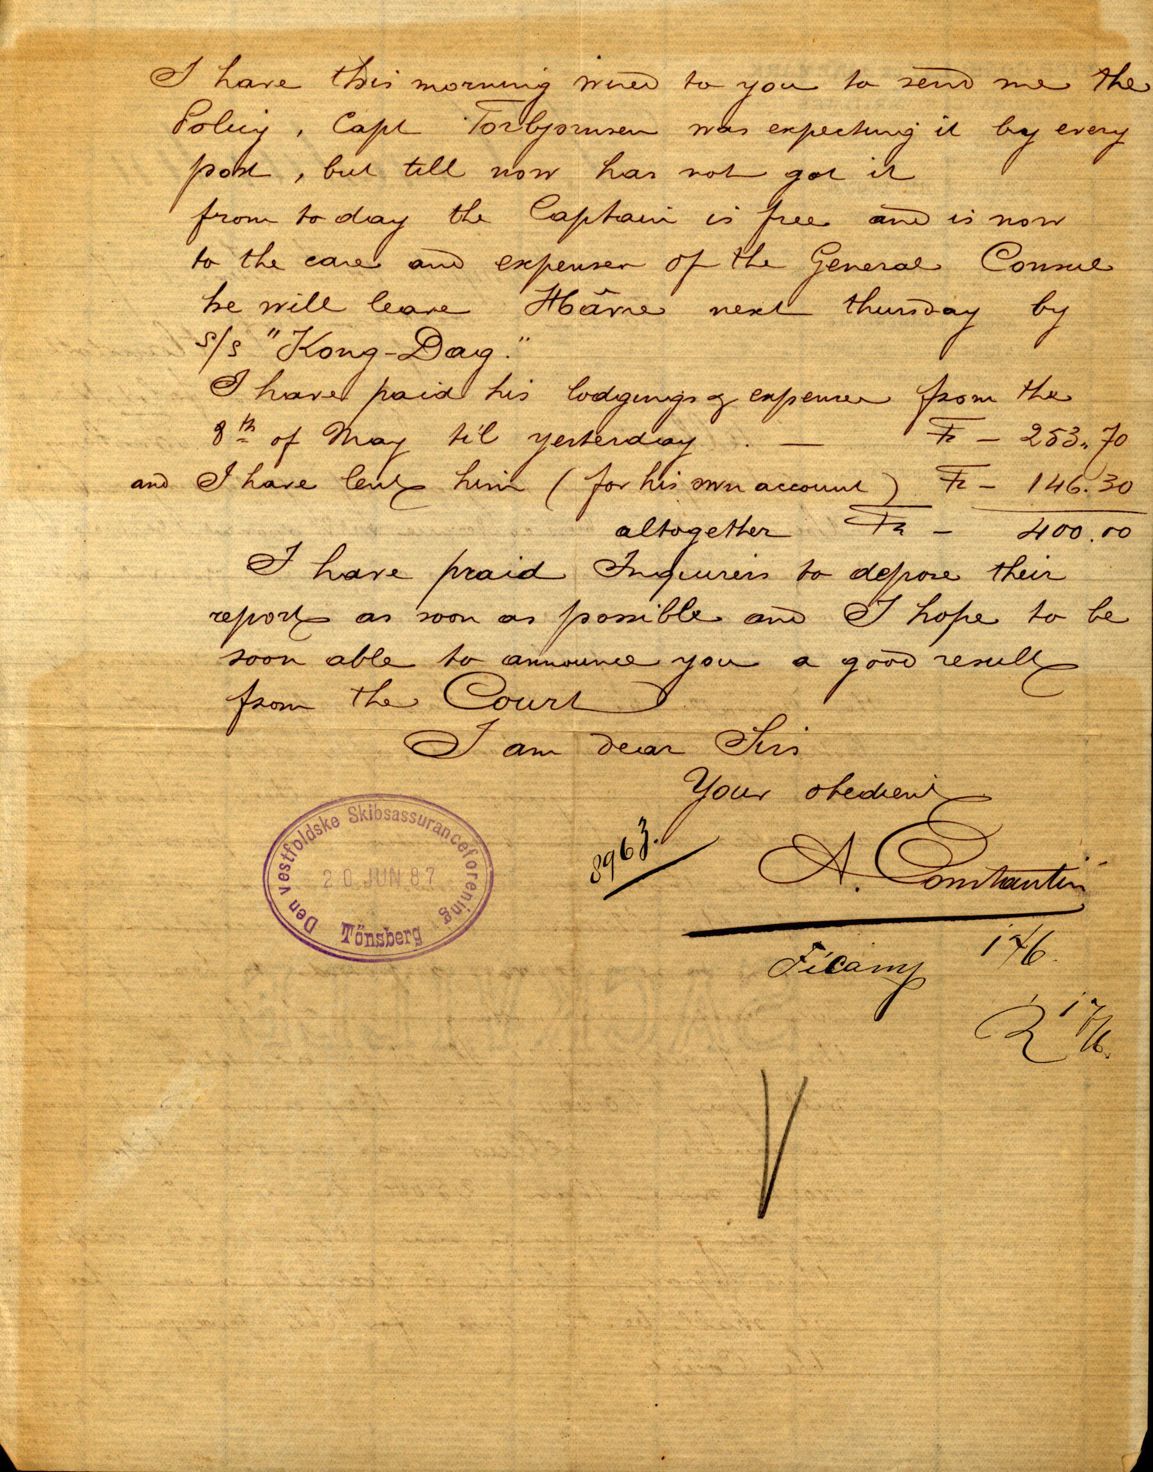 I have this morning wired to you to send me the
Policy, Capt Torbjornsen was expecting it by every
post, but till now has not got it
from to day the Captain is free and is now
to the care and expenses of the General Consul
he will leave Hâvre next thursday by
S/S "Kong-Dag."
I have paid his lodgings & expenses from the
8th of May til yesterday . — Fr — 253.70
and I have lent him (for his own account) Fr — 146.30
altogether Fr — 400.00
I have praid Inquirers to depose their
report as soon as possible and I hope to be
soon able to announce you a good result
from the Court
I am dear Sirs
Your obedient
8963.
A. Constantin
Den vestfoldske Skibsassuranceforening
20 JUN 87
Tönsberg
Fécamp